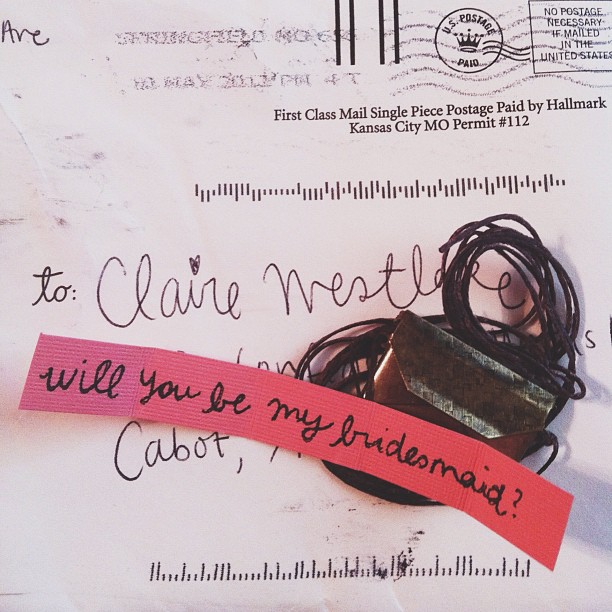 Ave
SPRINGFIELD MO
01 MAY 2012 PM 4 T
U.S. POSTAGE PAID
NO POSTAGE
NECESSARY
IF MAILED
IN THE
UNITED STATES
First Class Mail Single Piece Postage Paid by Hallmark
Kansas City MO Permit #112
to: Claire Westlake
will you be my bridesmaid?
Cabot,